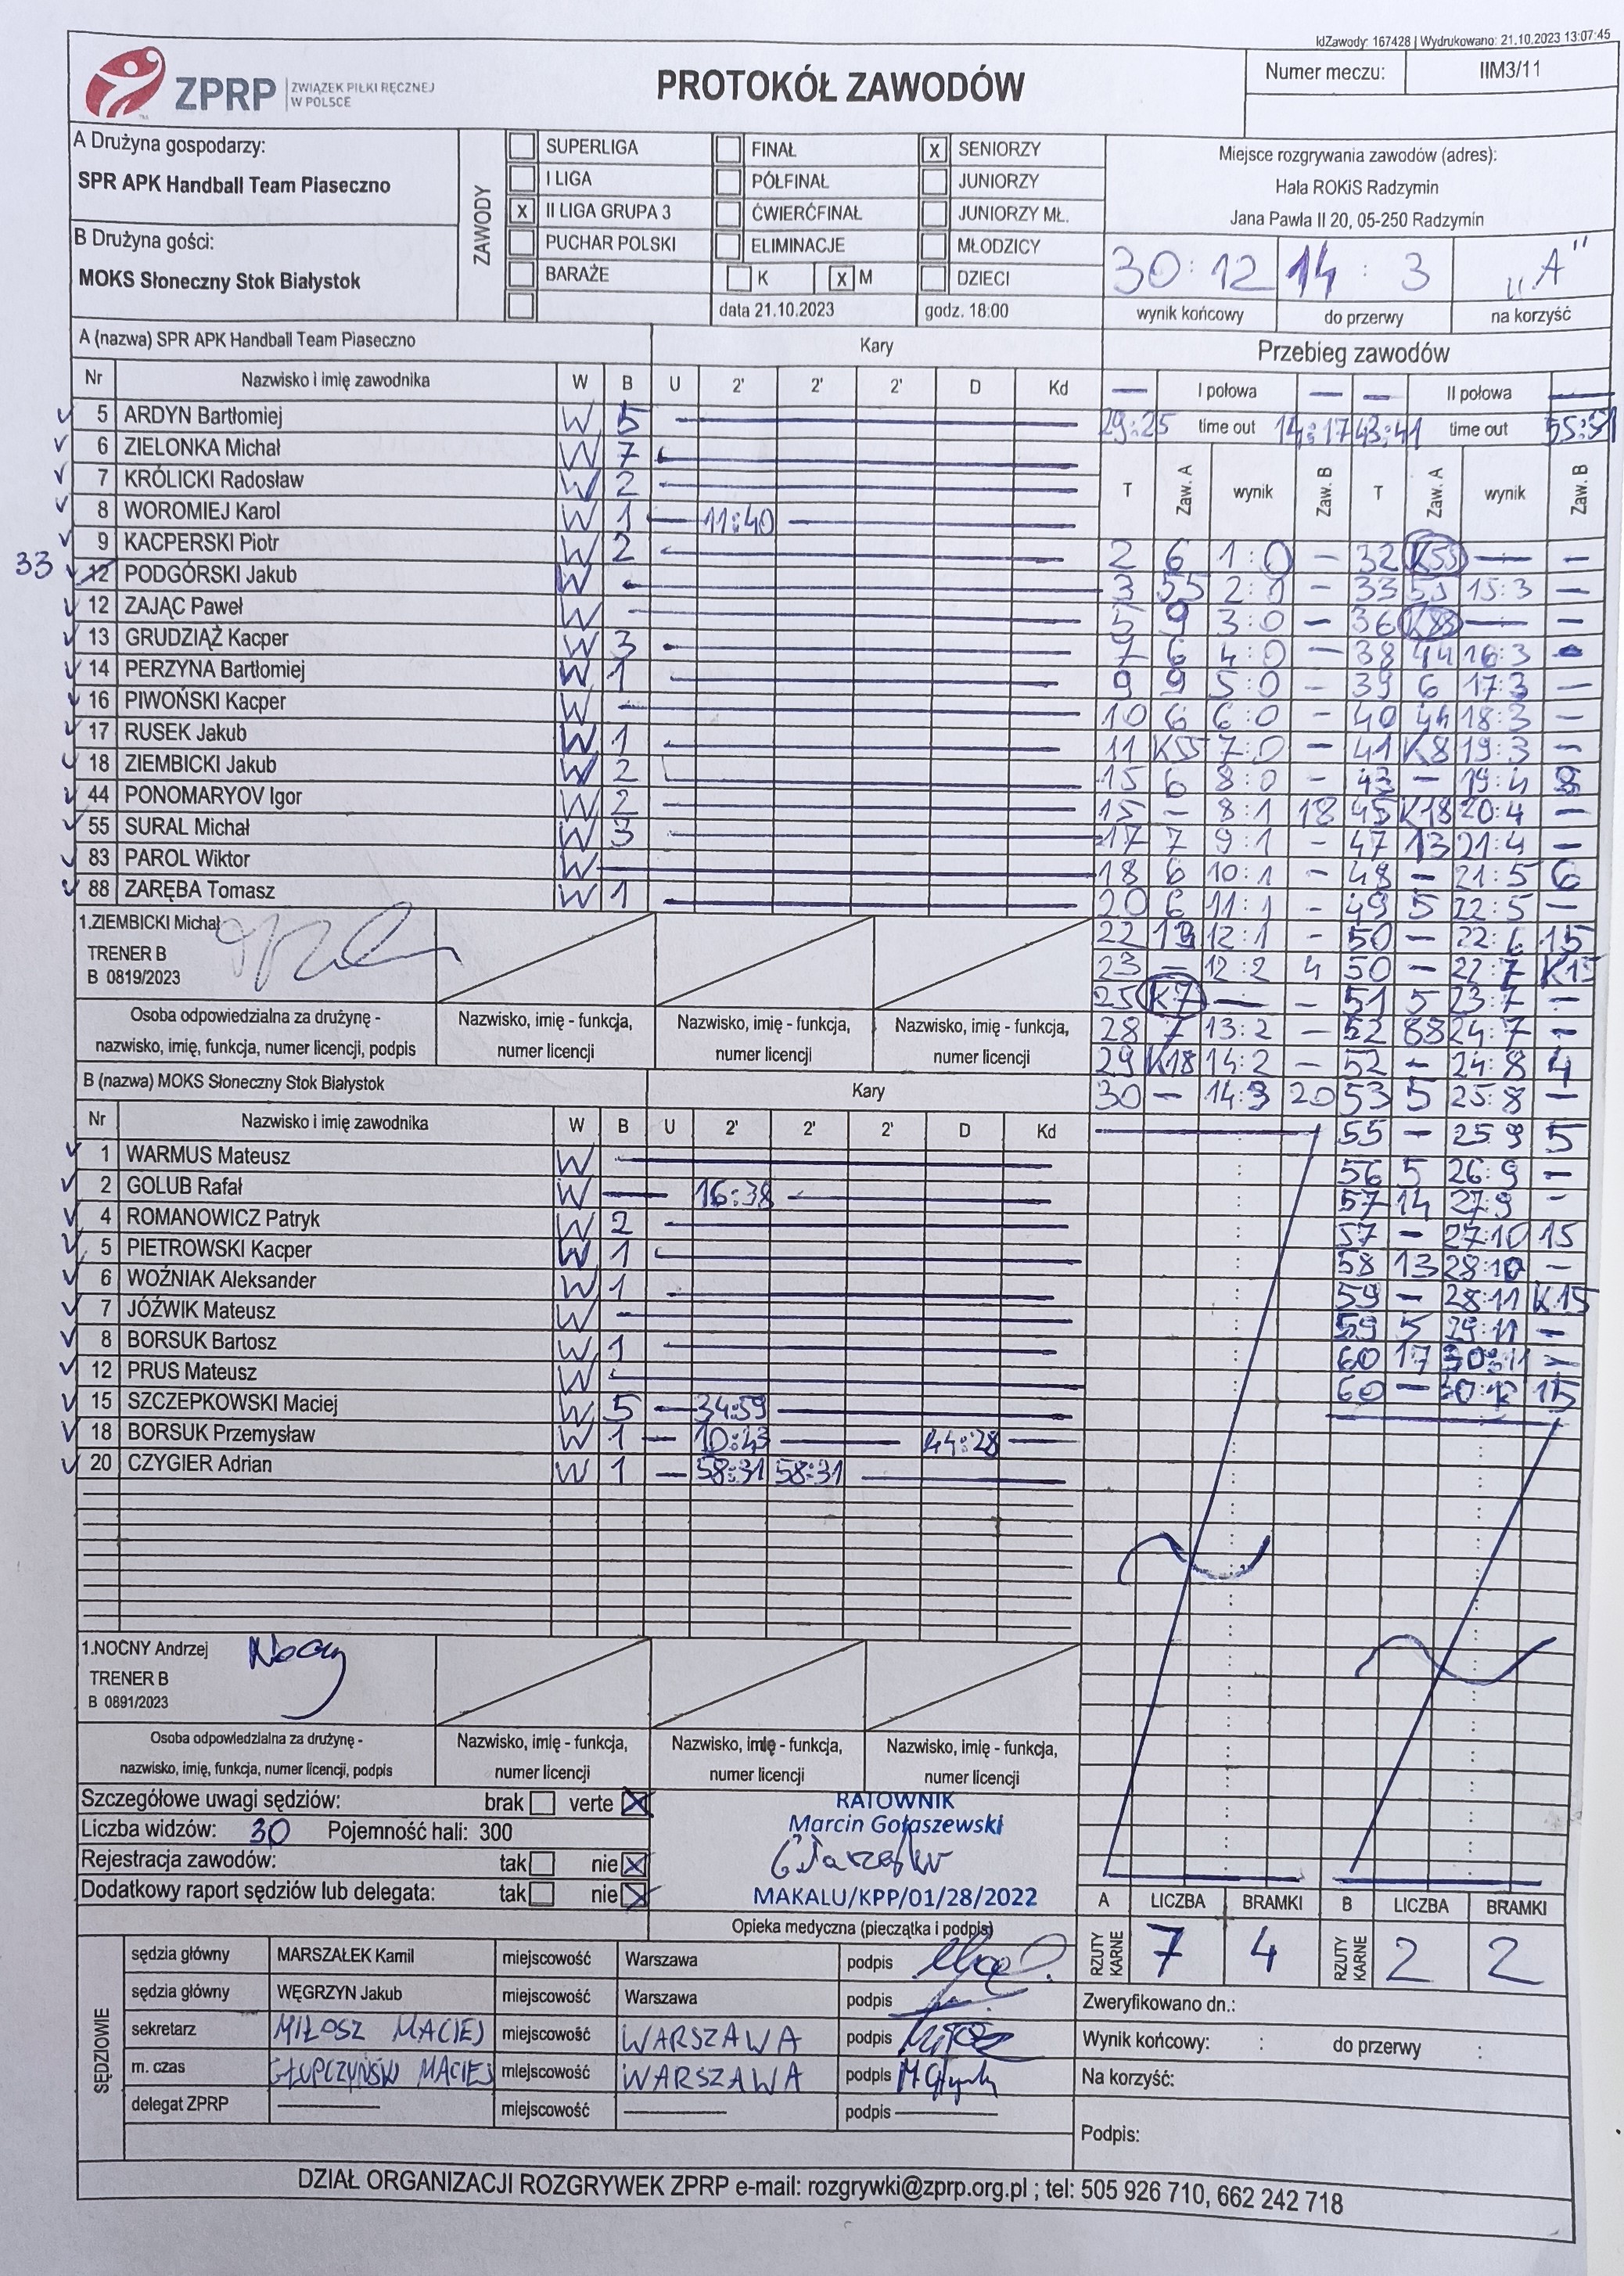 IdZawody: 167428 | Wydrukowano: 21.10.2023 13:07:45
ZPRP ZWIĄZEK PIŁKI RĘCZNEJ
W POLSCE
PROTOKÓŁ ZAWODÓW
Numer meczu: IIM3/11
A Drużyna gospodarzy:
SPR APK Handball Team Piaseczno
B Drużyna gości:
MOKS Słoneczny Stok Białystok
ZAWODY
SUPERLIGA FINAŁ X SENIORZY
I LIGA PÓŁFINAŁ JUNIORZY
X II LIGA GRUPA 3 ĆWIERĆFINAŁ JUNIORZY MŁ.
PUCHAR POLSKI ELIMINACJE MŁODZICY
BARAŻE K X M DZIECI
data 21.10.2023 godz. 18:00
Miejsce rozgrywania zawodów (adres):
Hala ROKiS Radzymin
Jana Pawla II 20, 05-250 Radzymin
30:12 14:3 „A"
wynik końcowy do przerwy na korzyść
A (nazwa) SPR APK Handball Team Piaseczno Kary
Nr Nazwisko i imię zawodnika W B U 2' 2' 2' D Kd
5 ARDYN Bartłomiej W 5
6 ZIELONKA Michał W 7
7 KRÓLICKI Radosław W 2
8 WOROMIEJ Karol W 1 — 11:40
9 KACPERSKI Piotr W 2
33 12 PODGÓRSKI Jakub W
12 ZAJĄC Paweł W
13 GRUDZIĄŻ Kacper W 3
14 PERZYNA Bartłomiej W 1
16 PIWOŃSKI Kacper W
17 RUSEK Jakub W 1
18 ZIEMBICKI Jakub W 2
44 PONOMARYOV Igor W 2
55 SURAL Michał W 3
83 PAROL Wiktor W
88 ZARĘBA Tomasz W 1
1.ZIEMBICKI Michał
TRENER B
B 0819/2023
Osoba odpowiedzialna za drużynę -
nazwisko, imię, funkcja, numer licencji, podpis
Nazwisko, imię - funkcja,
numer licencji
Nazwisko, imię - funkcja,
numer licencji
Nazwisko, imię - funkcja,
numer licencji
B (nazwa) MOKS Słoneczny Stok Białystok Kary
Nr Nazwisko i imię zawodnika W B U 2' 2' 2' D Kd
1 WARMUS Mateusz W
2 GOLUB Rafał W — 16:38
4 ROMANOWICZ Patryk W 2
5 PIETROWSKI Kacper W 1
6 WOŹNIAK Aleksander W 1
7 JÓŹWIK Mateusz W
8 BORSUK Bartosz W 1
12 PRUS Mateusz W
15 SZCZEPKOWSKI Maciej W 5 — 34:59
18 BORSUK Przemysław W 1 — 10:43 — 44:28 —
20 CZYGIER Adrian W 1 — 58:31 58:31
1.NOCNY Andrzej
TRENER B
B 0891/2023
Osoba odpowiedzialna za drużynę -
nazwisko, imię, funkcja, numer licencji, podpis
Nazwisko, imię - funkcja,
numer licencji
Nazwisko, imię - funkcja,
numer licencji
Nazwisko, imię - funkcja,
numer licencji
Przebieg zawodów
— I połowa — — II połowa —
29:25 time out 14:17 43:41 time out 55:31
T Zaw. A wynik Zaw. B T Zaw. A wynik Zaw. B
2 6 1:0 — 32 K55 — —
3 55 2:0 — 33 55 15:3 —
5 9 3:0 — 36 K88 — —
7 6 4:0 — 38 44 16:3 —
9 9 5:0 — 39 6 17:3 —
10 6 6:0 — 40 44 18:3 —
11 K55 7:0 — 41 K8 19:3 —
15 6 8:0 — 43 — 19:4 8
15 — 8:1 18 45 K18 20:4 —
17 7 9:1 — 47 13 21:4 —
18 6 10:1 — 48 — 21:5 6
20 6 11:1 — 49 5 22:5 —
22 13 12:1 — 50 — 22:6 15
23 — 12:2 4 50 — 22:7 K15
25 K7 — — 51 5 23:7 —
28 7 13:2 — 52 88 24:7 —
29 K18 14:2 — 52 — 24:8 4
30 — 14:3 20 53 5 25:8 —
55 — 25:9 5
56 5 26:9 —
57 14 27:9 —
57 — 27:10 15
58 13 28:10 —
59 — 28:11 K15
59 5 29:11 —
60 17 30:11 —
60 — 30:12 15
Szczegółowe uwagi sędziów: brak verte X
Liczba widzów: 30 Pojemność hali: 300
Rejestracja zawodów: tak nie X
Dodatkowy raport sędziów lub delegata: tak nie X
RATOWNIK
Marcin Gołaszewski
MAKALU/KPP/01/28/2022
Opieka medyczna (pieczątka i podpis)
A LICZBA BRAMKI B LICZBA BRAMKI
RZUTY KARNE 7 4 RZUTY KARNE 2 2
SĘDZIOWIE
sędzia główny MARSZAŁEK Kamil miejscowość Warszawa podpis
sędzia główny WĘGRZYN Jakub miejscowość Warszawa podpis
sekretarz MIŁOSZ MACIEJ miejscowość WARSZAWA podpis
m. czas GŁUPCZYŃSKI MACIEJ miejscowość WARSZAWA podpis
delegat ZPRP — miejscowość — podpis —
Zweryfikowano dn.:
Wynik końcowy: : do przerwy :
Na korzyść:
Podpis:
DZIAŁ ORGANIZACJI ROZGRYWEK ZPRP e-mail: rozgrywki@zprp.org.pl ; tel: 505 926 710, 662 242 718